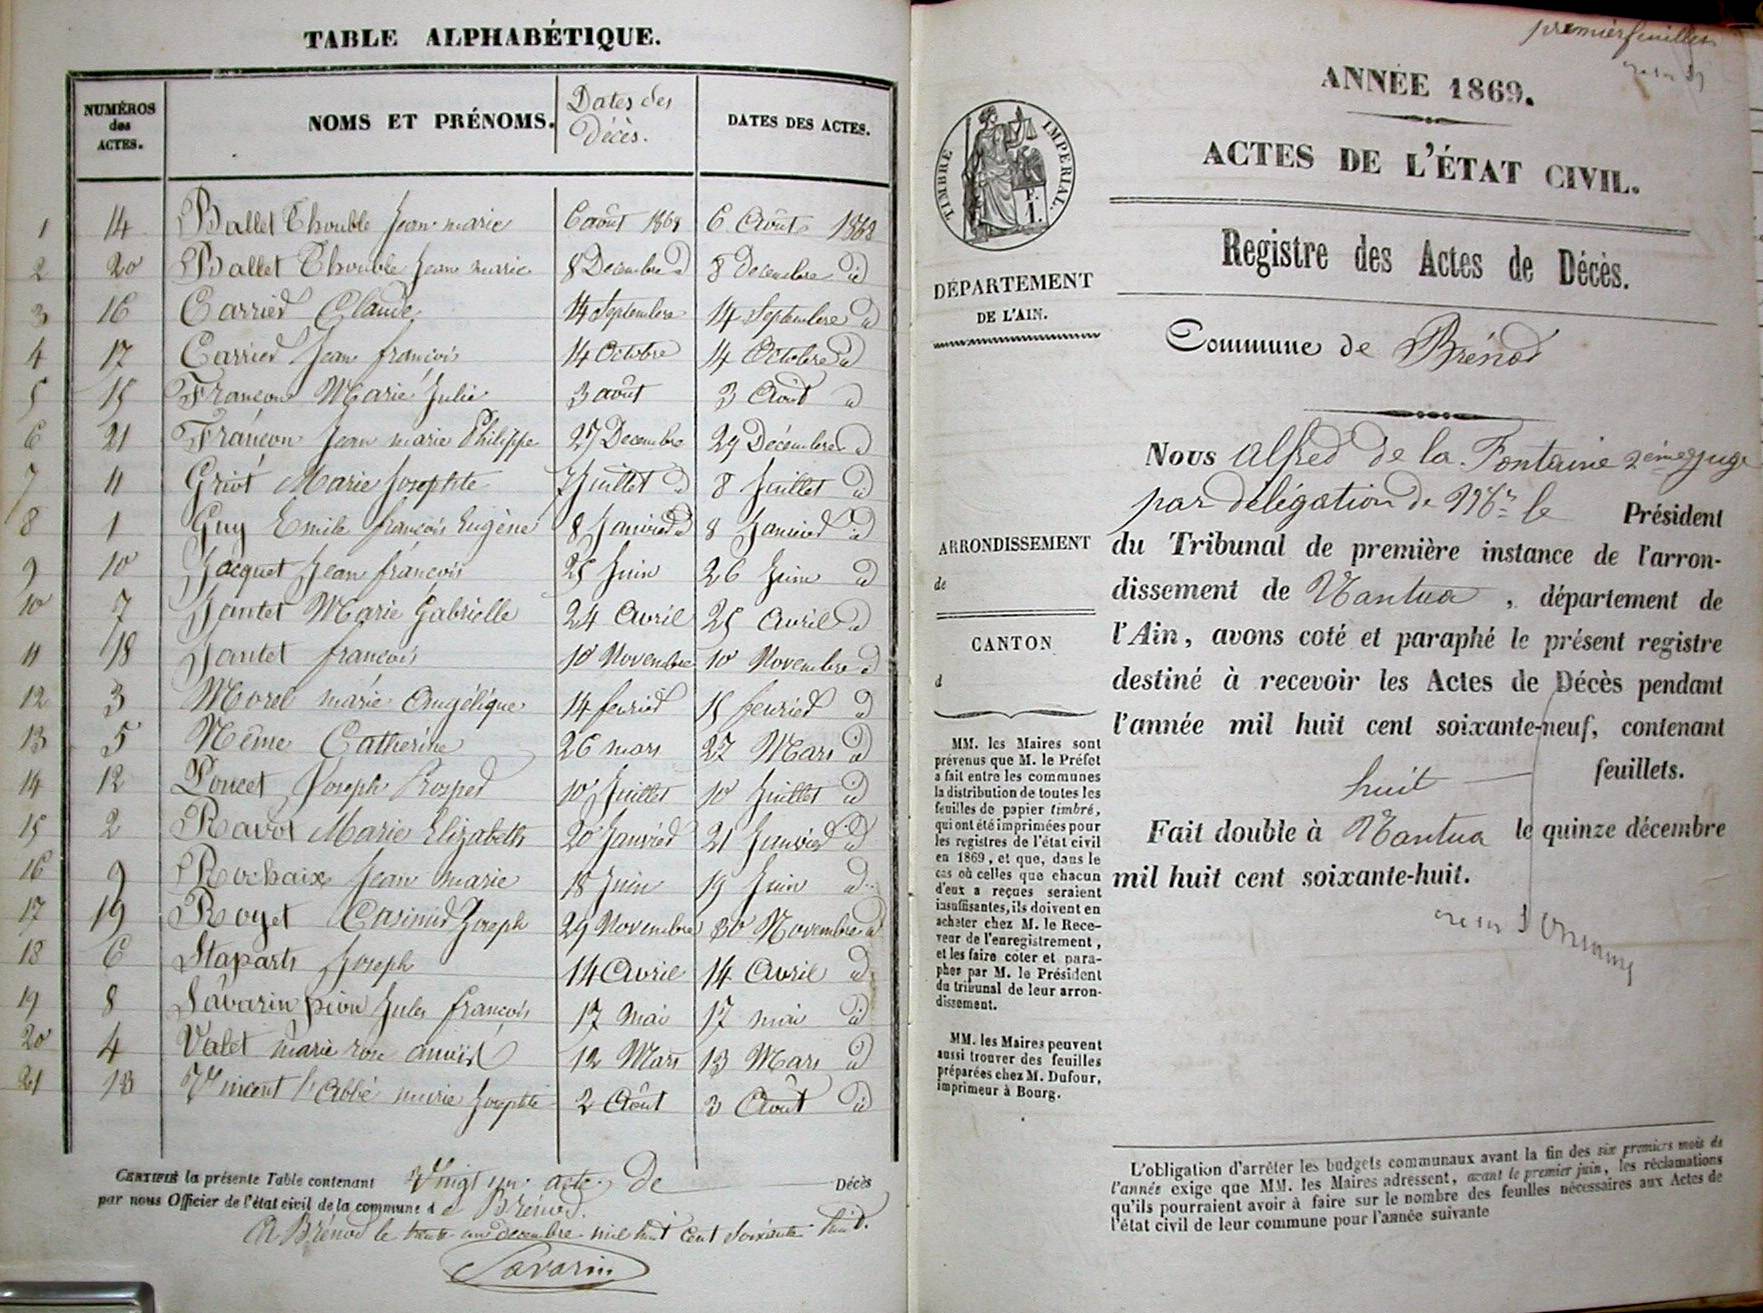 TABLE ALPHABÉTIQUE.
NUMÉROS des ACTES. NOMS ET PRÉNOMS. Dates des Décès. DATES DES ACTES.
1 14 Ballet Thouble Jean marie 6 août 1868 6 Août 1868
2 20 Ballet Thouble Jean marie 8 Decembre id 8 decembre id
3 16 Carrier Claude 14 Septembre 14 Septembre id
4 17 Carrier Jean françois 14 Octobre 14 Octobre id
5 15 Françon Marie Julie 3 août 3 Août id
6 21 Françon Jean marie Philippe 27 Decembre 29 Décembre id
7 11 Griot Marie Josephte 7 Juillet id 8 Juillet id
8 1 Guy Emile françois Eugène 8 Janvier id 8 Janvier id
9 10 Jacquet Jean françois 25 Juin 26 Juin id
10 7 Jantet Marie Gabrielle 24 Avril 25 Avril id
11 18 Jantet françois 10 Novembre 10 Novembre id
12 3 Morel marie Angélique 14 fevrier 15 fevrier id
13 5 Nême Catherine 26 mars 27 Mars id
14 12 Poncet Joseph Prosper 10 Juillet 10 Juillet id
15 2 Ravot Marie Elizabeth 20 Janvier 21 Janvier id
16 9 Rochaix Jean marie 18 Juin 19 Juin id
17 19 Royet Casimir Joseph 29 Novembre 30 Novembre id
18 6 Staparts Joseph 14 Avril 14 Avril id
19 8 Savarin pion Jules françois 17 Mai 17 mai id
20 4 Valet marie rose 12 Mars 13 Mars id
21 13 Vincent l'Abbé marie Josephte 2 Août 3 Août id
CERTIFIÉ la présente Table contenant Vingt un acte de Décès
par nous Officier de l'état civil de la commune d e Brénod.
A Brénod le trente un decembre mil huit cent soixante huit.
Savarin
premier feuillet
ANNÉE 1869.
ACTES DE L'ÉTAT CIVIL.
TIMBRE IMPÉRIAL.
Registre des Actes de Décès.
DÉPARTEMENT
DE L'AIN.
Commune de Brénod
ARRONDISSEMENT
de
CANTON
d
MM. les Maires sont
prévenus que M. le Préfet
a fait entre les communes
la distribution de toutes les
feuilles de papier timbré,
qui ont été imprimées pour
les registres de l'état civil
en 1869, et que, dans le
cas où celles que chacun
d'eux a reçues seraient
insuffisantes, ils doivent en
acheter chez M. le Rece-
veur de l'enregistrement,
et les faire coter et para-
pher par M. le Président
du tribunal de leur arron-
dissement.
MM. les Maires peuvent
aussi trouver des feuilles
préparées chez M. Dufour,
imprimeur à Bourg.
Nous Alfred de la Fontaine 2ème juge
par délégation de Mr le Président
du Tribunal de première instance de l'arron-
dissement de Nantua, département de
l'Ain, avons coté et paraphé le présent registre
destiné à recevoir les Actes de Décès pendant
l'année mil huit cent soixante-neuf, contenant
huit feuillets.
Fait double à Nantua le quinze décembre
mil huit cent soixante-huit.
L'obligation d'arrêter les budgets communaux avant la fin des six premiers mois de
l'année exige que MM. les Maires adressent, avant le premier juin, les réclamations
qu'ils pourraient avoir à faire sur le nombre des feuilles nécessaires aux Actes de
l'état civil de leur commune pour l'année suivante